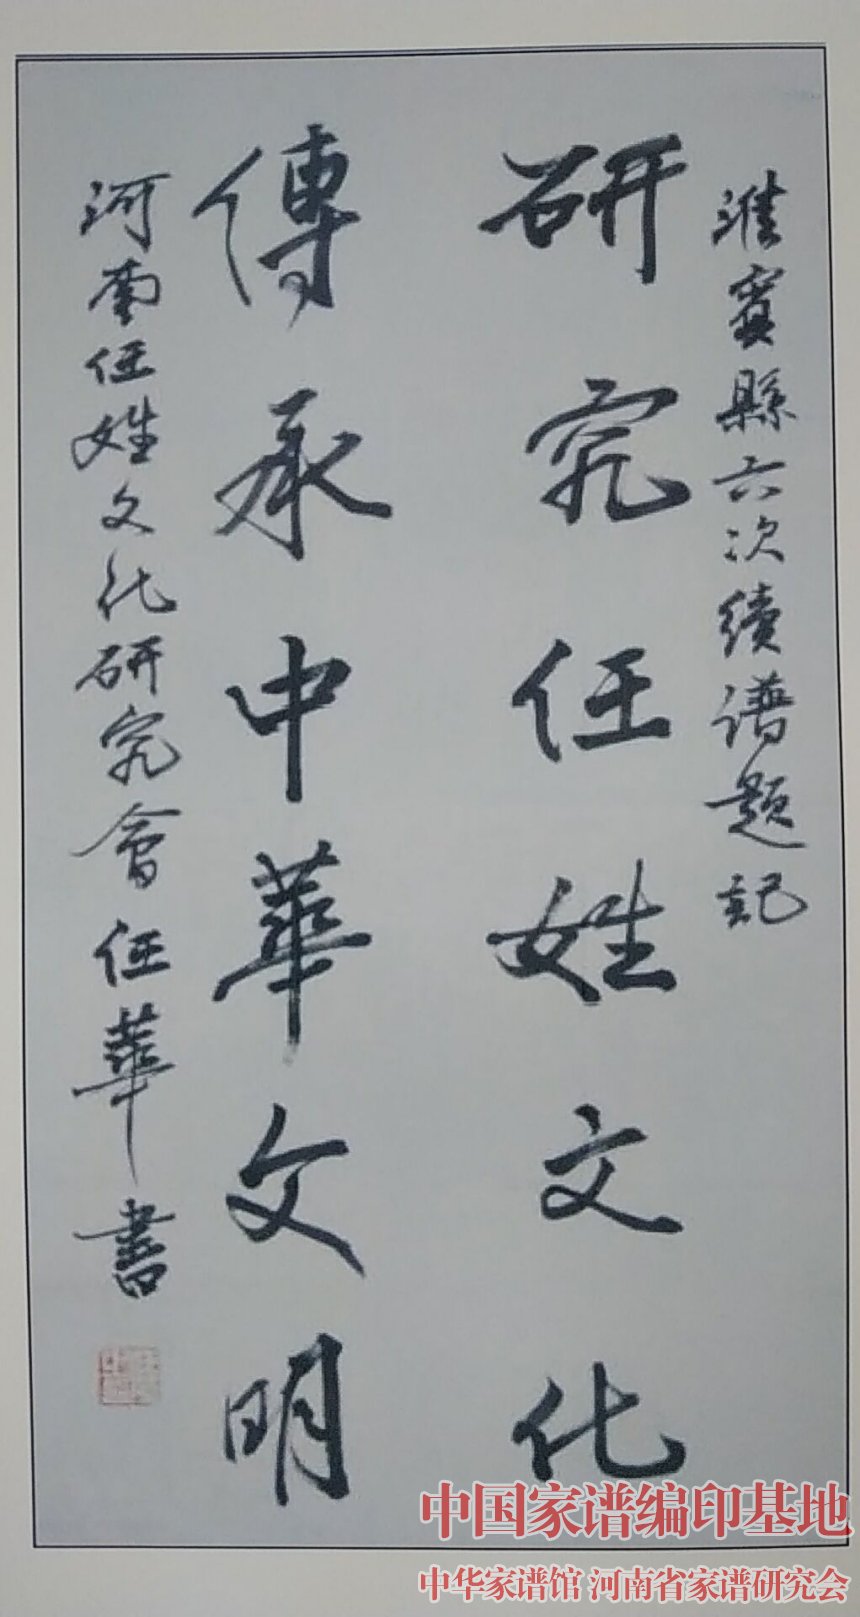 淮賓縣六次續譜题記
研究任姓文化
傳承中華文明
河南任姓文化研究會任華書
中国家谱编印基地
中华家谱馆 河南省家谱研究会